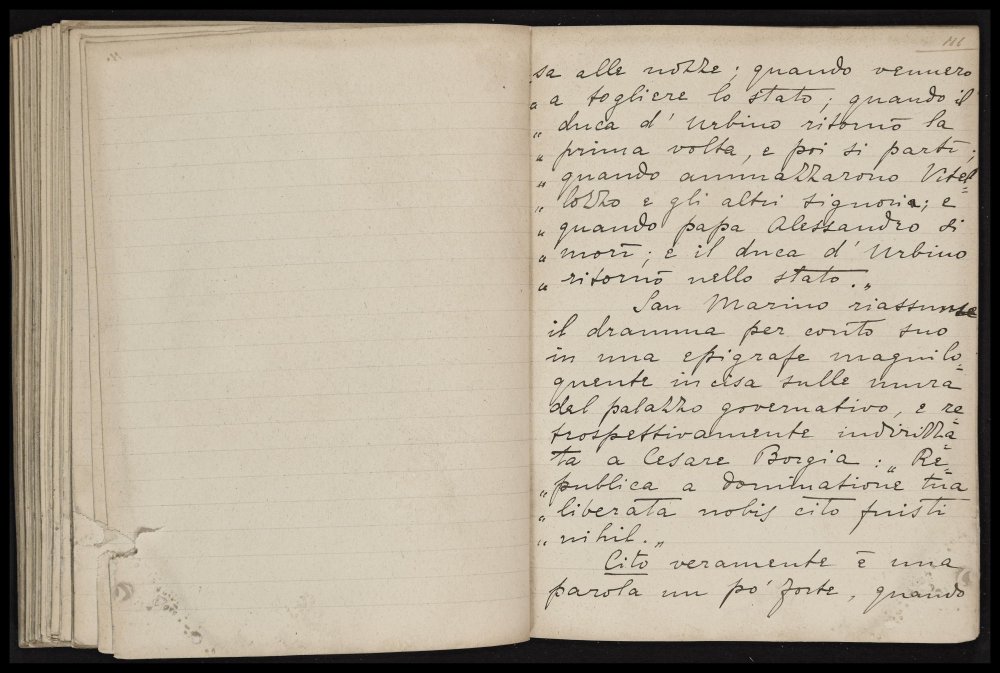 166
sa alle nozze; quando vennero
„ a togliere lo stato; quando il
„ duca d' Urbino ritornò la
„ prima volta, e poi si partì;
„ quando ammazzarono Vitel=
„ lozzo e gli altri signori; e
„ quando papa Alessandro si
„ morì; e il duca d' Urbino
„ ritornò nello stato.„
San Marino riassunse
il dramma per conto suo
in una epigrafe magnilo=
quente incisa sulle mura
del palazzo governativo, e re=
trospettivamente indirizza=
ta a Cesare Borgia: „ Re=
„ publica a dominatione tua
„ liberata nobis cito fuisti
„ nihil.„
Cito veramente è una
parola un po' forte, quando